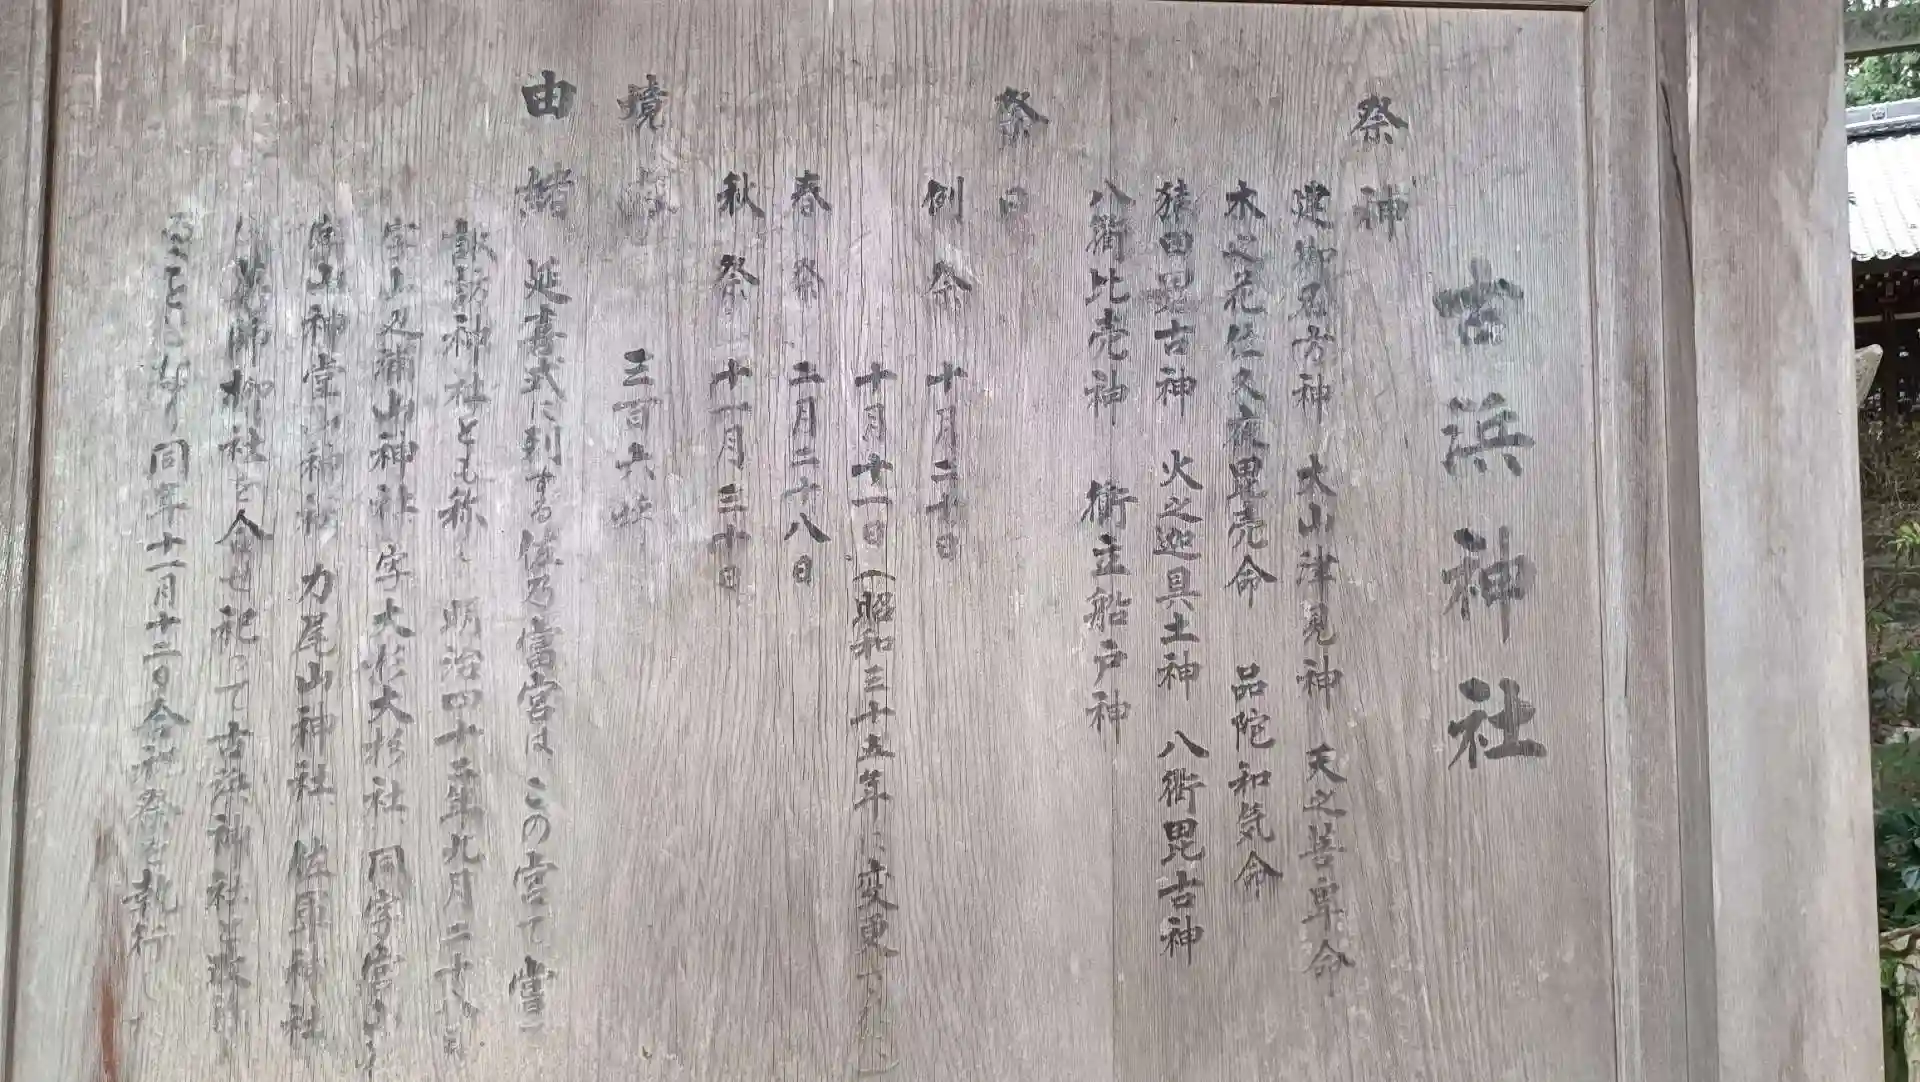 古浜神社
祭神
建御名方神 大山津見神 天之菩卑命
木之花佐久夜毘売命 品陀和気命
猿田毘古神 火之迦具土神 八衢毘古神
八衢比売神 衢立船戸神
祭日
例祭 十月二十日
十月十一日(昭和三十五年に変更
春祭 二月二十八日
秋祭 十一月三十日
境
三百六
由緒 延喜式に列する佐乃富宮はこの宮で
諏訪神社とも称し 明治四十二年九月二十八日
山神社 字大杉大杉社 同字宮山
山神堂山神社 力尾山神社 佐軍神社
柳社を合せ祀って古浜神社と改
同年十一月十二日合祀祭を執行し